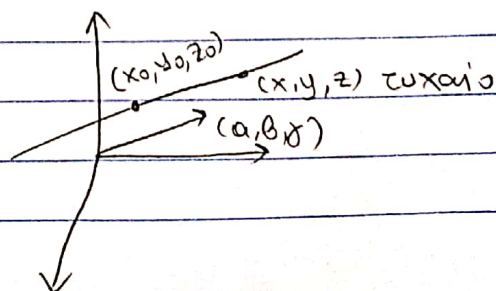 (x₀, y₀, z₀)
(x, y, z) τυχαίο
(α, β, γ)